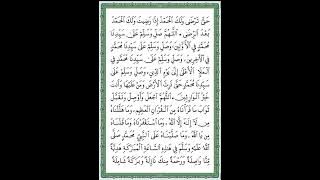 حَتَّى تَرْضَى وَلَكَ الْحَمْدُ إِذَا رَضِيتَ وَلَكَ الْحَمْدُ
بَعْدَ الرِّضَى ، اَللّٰهُمَّ صَلِّ وَسَلِّمْ عَلَى سَيِّدِنَا
مُحَمَّدٍ فِي الْأَوَّلِينَ، وَصَلِّ وَسَلِّمْ عَلَى سَيِّدِنَا مُحَمَّدٍ
فِي الْآخِرِينَ، وَصَلِّ وَسَلِّمْ عَلَى سَيِّدِنَا مُحَمَّدٍ فِي
الْمَلَإِ الْأَعْلَى إِلَى يَوْمِ الدِّينِ، وَصَلِّ وَسَلِّمْ عَلَى
سَيِّدِنَا مُحَمَّدٍ حَتَّى تَرِثَ الْأَرْضَ وَمَنْ عَلَيْهَا وَأَنْتَ
خَيْرُ الْوَارِثِينَ . اَللّٰهُمَّ اجْعَلْ وَأَوْصِلْ وَتَقَبَّلْ
ثَوَابَ مَا قَرَأْنَاهُ مِنَ الْقُرْآنِ الْعَظِيمِ، وَمَا هَلَّلْنَاهُ
مِنْ لَا إِلٰهَ إِلَّا اللّٰهُ ، وَمَا اسْتَغْفَرْنَاهُ وَمَا قُلْنَاهُ
وَمَا صَلَّيْنَاهُ عَلَى النَّبِيِّ مُحَمَّدٍ صَلَّى
اللّٰهُ عَلَيْهِ وَسَلَّمَ فِي هَذِهِ السَّاعَةِ الْمُبَارَكَةِ هَدِيَّةً
مِنَّا وَاصِلَةً وَرَحْمَةً مِنْكَ نَازِلَةً وَبَرَكَةً شَامِلَةً